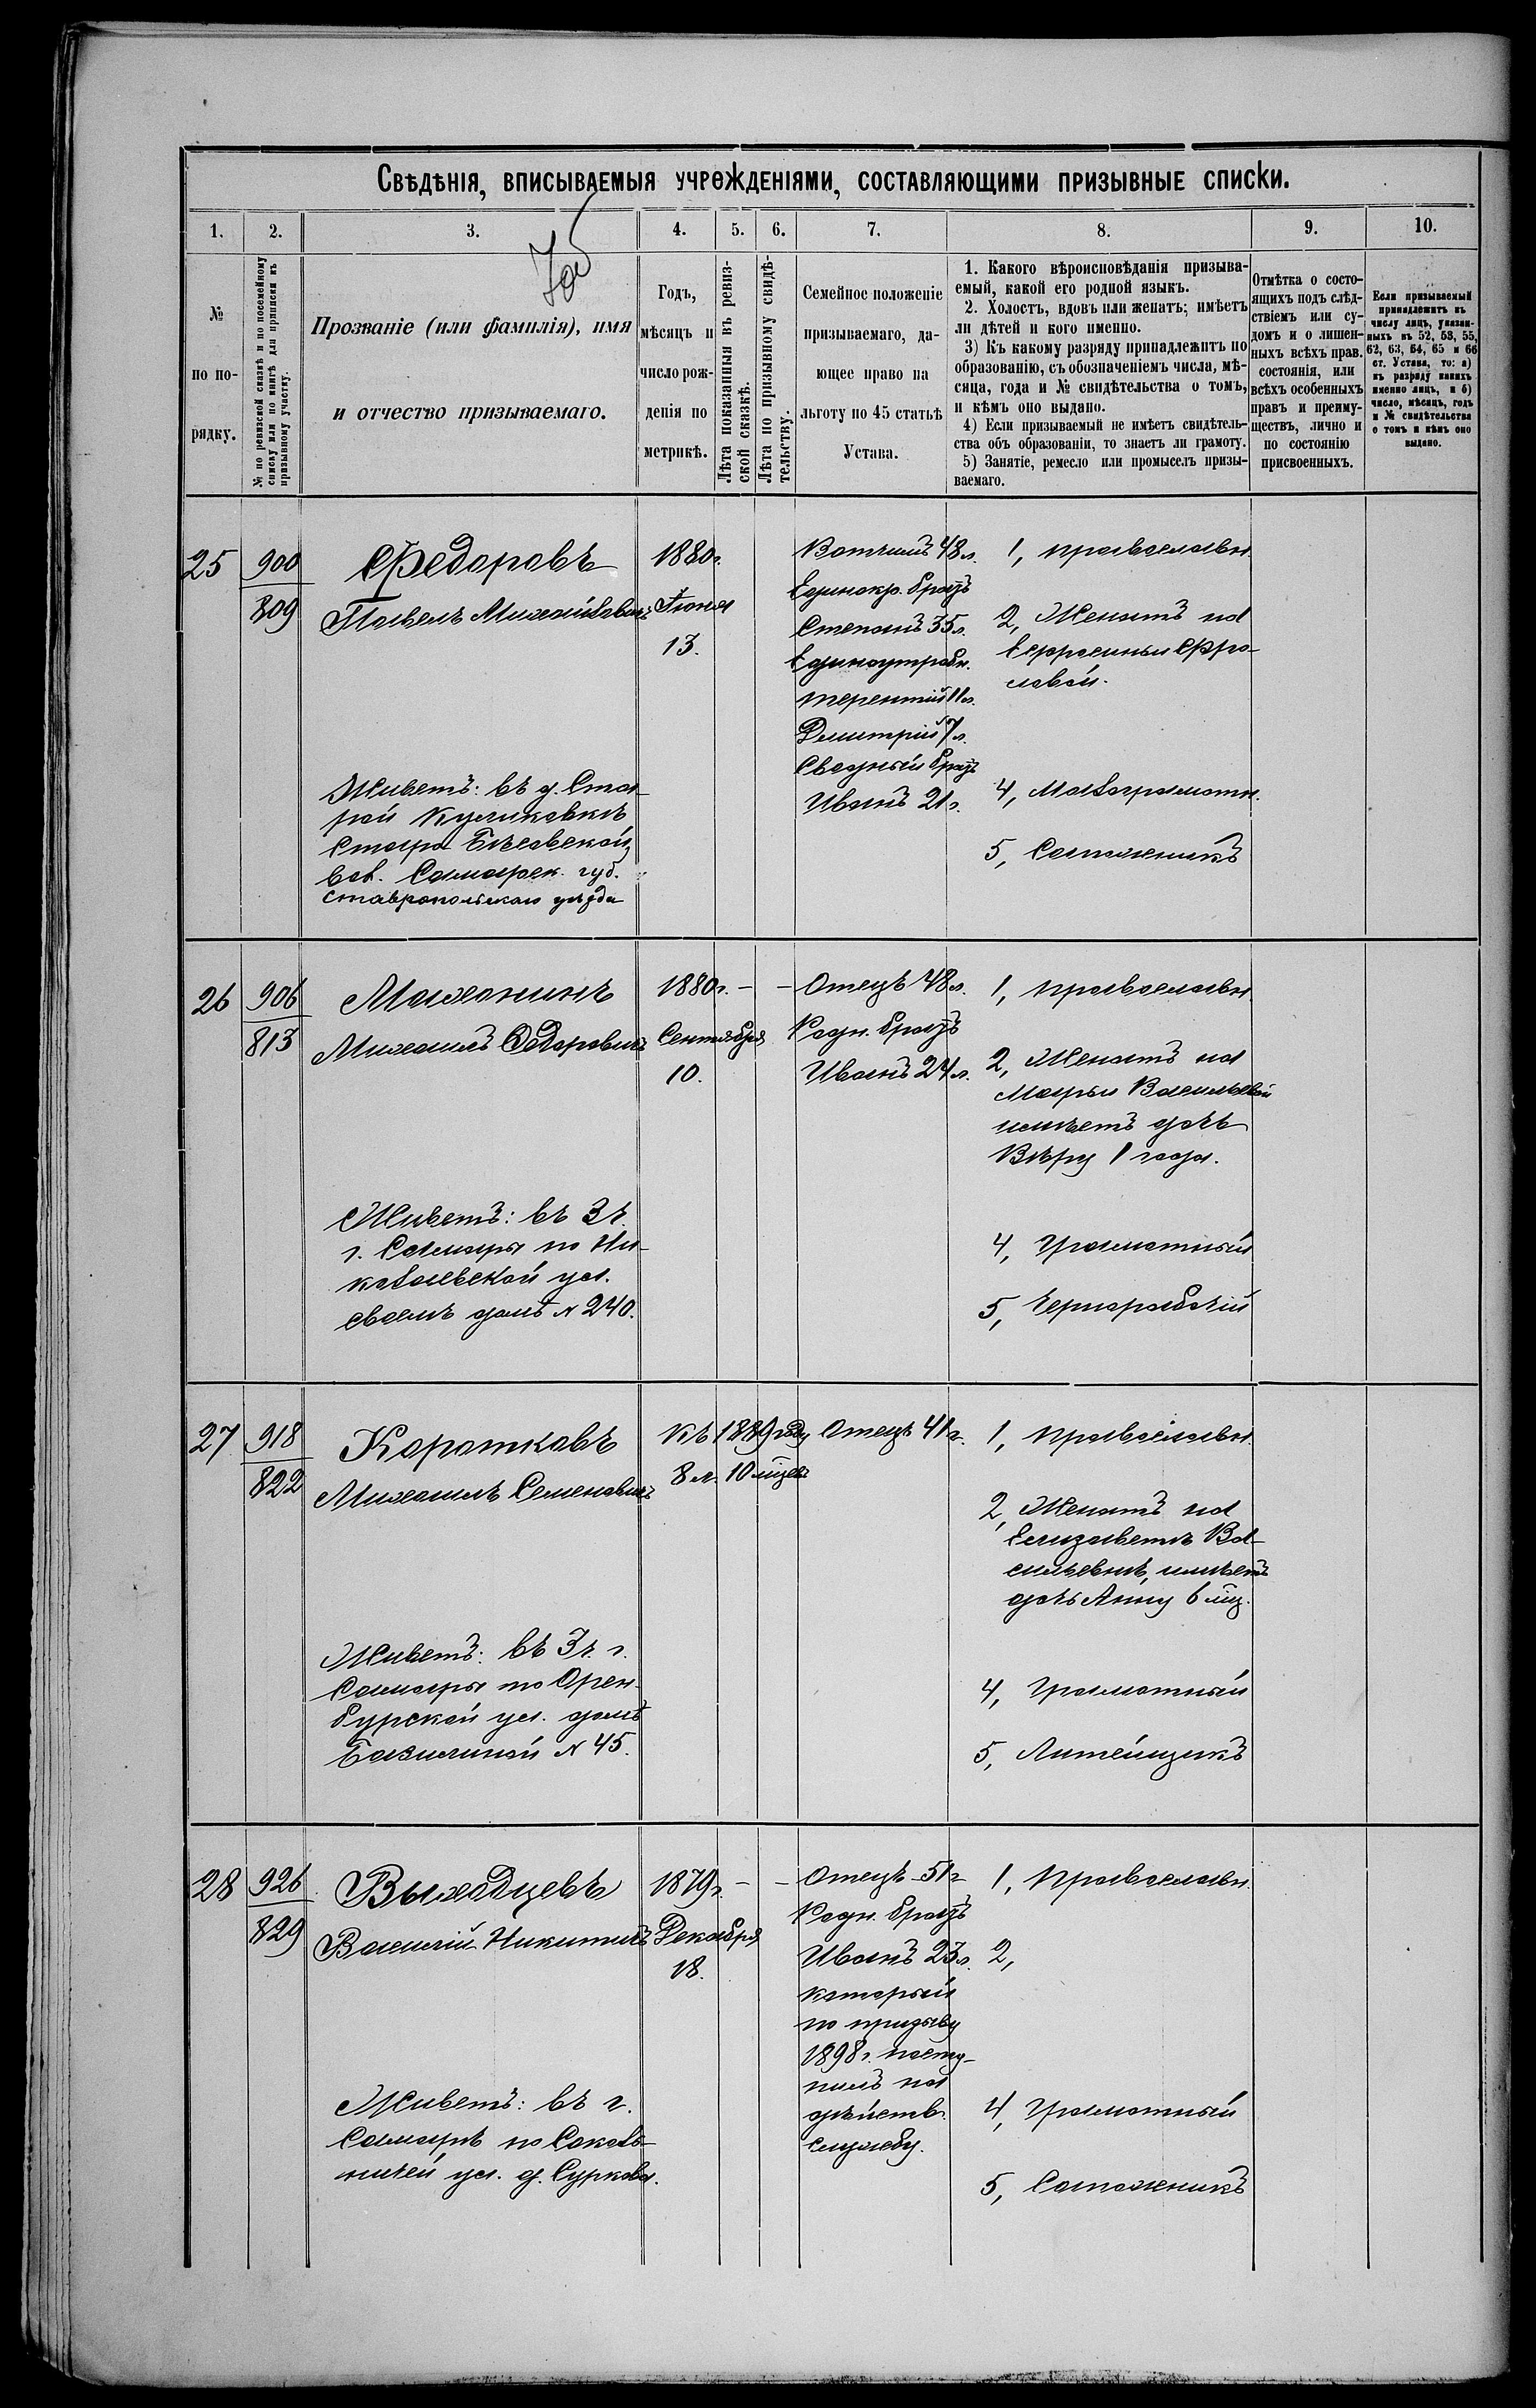 Свѣдѣнія, вписываемыя учрежденіями, составляющими призывные списки.
1. 2. 3. 4. 5. 6. 7. 8. 9. 10.
№
по по-
рядку.
№ по ревизской сказкѣ и по посемейному
списку или по книгѣ для приписки къ
призывному участку.
Прозваніе (или фамилія), имя
и отчество призываемаго.
Годъ,
мѣсяцъ и
число рож-
денія по
метрикѣ.
Лѣта показанныя въ ревиз-
ской сказкѣ.
Лѣта по призывному свидѣ-
тельству.
Семейное положеніе
призываемаго, да-
ющее право на
льготу по 45 статьѣ
Устава.
1. Какого вѣроисповѣданія призыва-
емый, какой его родной языкъ.
2. Холостъ, вдовъ или женатъ; имѣетъ
ли дѣтей и кого именно.
3) Къ какому разряду принадлежитъ по
образованію, съ обозначеніемъ числа, мѣ-
сяца, года и № свидѣтельства о томъ,
и кѣмъ оно выдано.
4) Если призываемый не имѣетъ свидѣтель-
ства объ образованіи, то знаетъ ли грамоту.
5) Занятіе, ремесло или промыселъ призы-
ваемаго.
Отмѣтка о состо-
ящихъ подъ слѣд-
ствіемъ или су-
домъ и о лишен-
ныхъ всѣхъ прав.
состоянія, или
всѣхъ особенныхъ
правъ и преиму-
ществъ, лично и
по состоянію
присвоенныхъ.
Если призываемый
принадлежитъ къ
числу лицъ, указан-
ныхъ въ 52, 53, 55,
62, 63, 64, 65 и 66
ст. Устава, то: а)
къ разряду какихъ
именно лицъ, и б)
число, мѣсяцъ, годъ
и № свидѣтельства
о томъ и кѣмъ оно
выдано.
25
900
809
Федоровъ
Павелъ Михайловичъ
Живетъ: въ д. Ста-
рой Куликовкѣ
Старо Бѣсовской
вол. Самарск. губ.
Ставропольскаго уѣзда
1880г.
Іюня
13.
Вотчимъ 48л.
Единокр. братъ
Степанъ 35л.
Единоутробн.
Терентій 11л.
Димитрій 7л.
Сводный братъ
Иванъ 21г.
1, православн.
2, Женатъ на
Ефросиньи Фро-
ловой.
4, Малограмотн.
5, Сапожникъ
26
906
813
Маханинъ
Михаилъ Федоровичъ
Живетъ: въ 3ч.
г. Самары по Ни-
колаевской ул.
своемъ домѣ № 240.
1880г. — —
Сентября
10.
Отецъ 48л.
Родн. братъ
Иванъ 24л.
1, православн.
2, Женатъ на
Марьи Васильевой
имѣетъ дочь
Вѣру 1 года.
4, Грамотный
5, Чернорабочій
27
918
822
Коротковъ
Михаилъ Семеновичъ
Живетъ: въ 3ч. г.
Самары по Орен-
бургской ул. домъ
№ 45.
Къ 1889 году
8л. 10 мѣсяц.
Отецъ 41г.
1, православн.
2, Женатъ на
Елизаветѣ Ва-
сильевнѣ, имѣетъ
дочь Анну 6 мѣс.
4, Грамотный
5, Литейщикъ
28
926
829
Выходцевъ
Василій Никитичъ
Живетъ: въ г.
Самарѣ по Соколь-
ничей ул. д. Суркова.
1879г. — —
Декабря
18.
Отецъ 51г
Родн. братъ
Иванъ 23л.
который
по призыву
1898г. посту-
пилъ на
дѣйств.
службу.
1, Православн.
2,
4, Грамотный
5, Сапожникъ